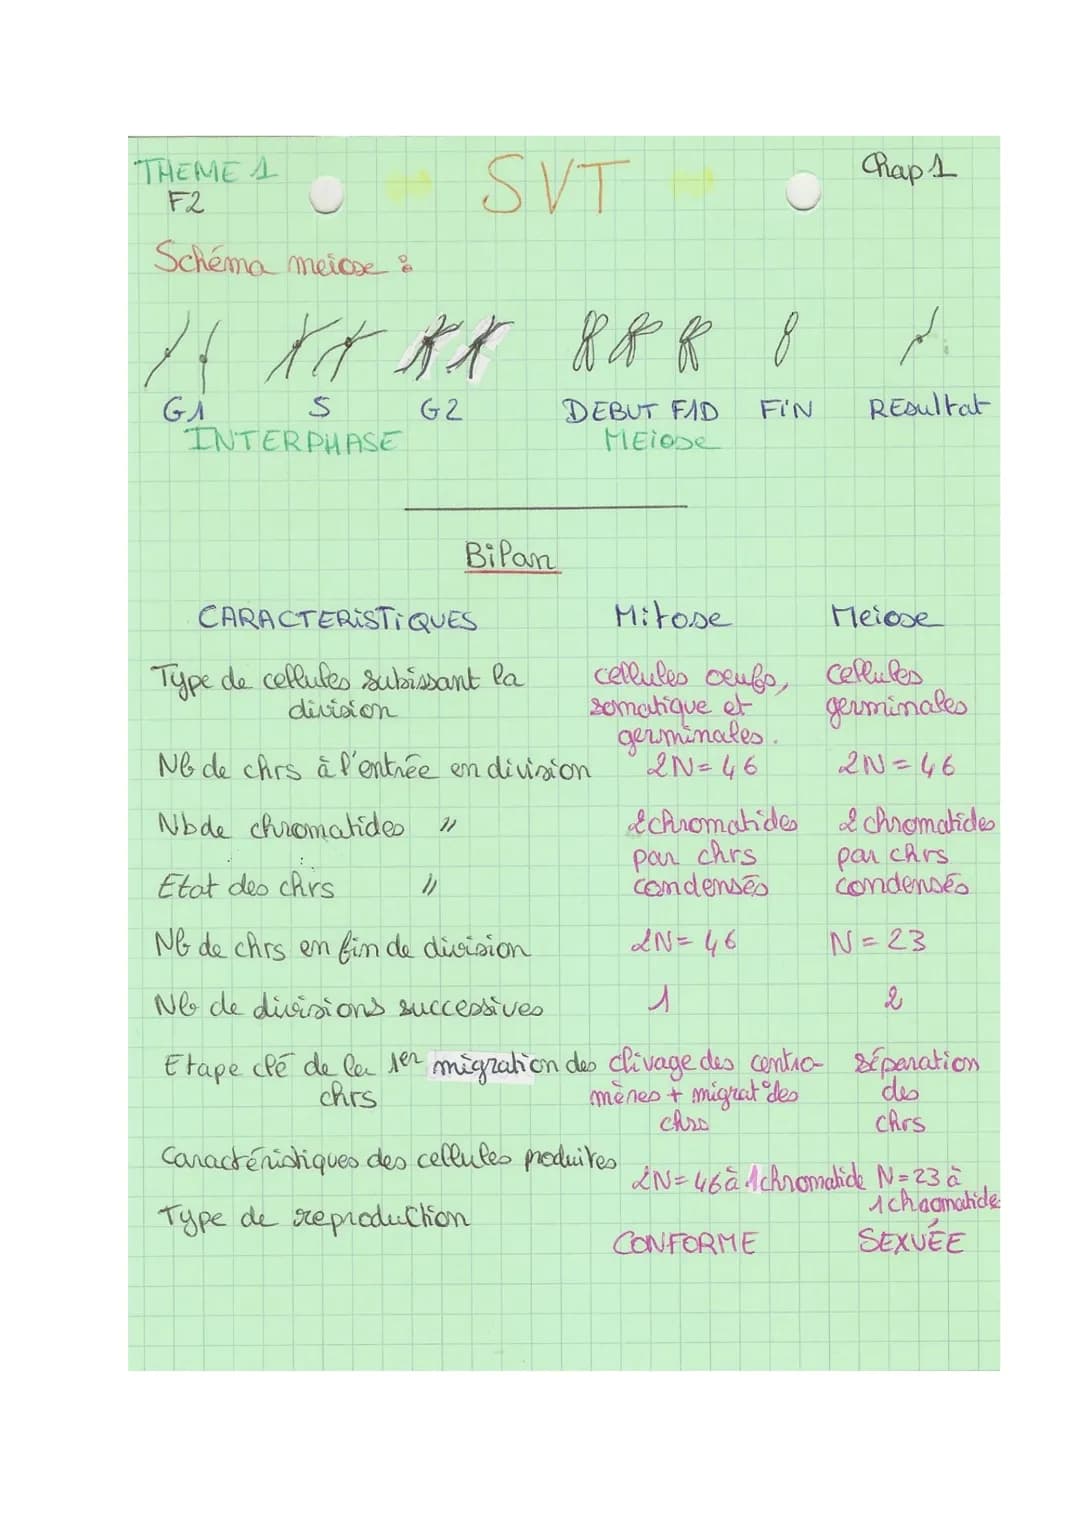 THEME 1 SVT Chap 1
F2
Schéma meiose :
G1 S G2 DEBUT FIN RESultat
INTERPHASE MEiose
Bilan
CARACTERiSTiQUES Mitose Meiose
Type de cellules subissant la division cellules oeufs, somatique et germinales. cellules germinales
Nb de chrs à l'entrée en division 2N=46 2N=46
Nb de chromatides " 2 chromatides par chrs 2 chromatides par chrs
Etat des chrs " condensés condensés
Nb de chrs en fin de division 2N=46 N=23
Nb de divisions successives 1 2
Etape clé de la 1er migration des chrs clivage des centromères + migrat° des chrs séparation des chrs
Caractéristiques des cellules produites 2N=46 à 1 chromatide N=23 à 1 chromatide
Type de reproduction CONFORME SEXUÉE